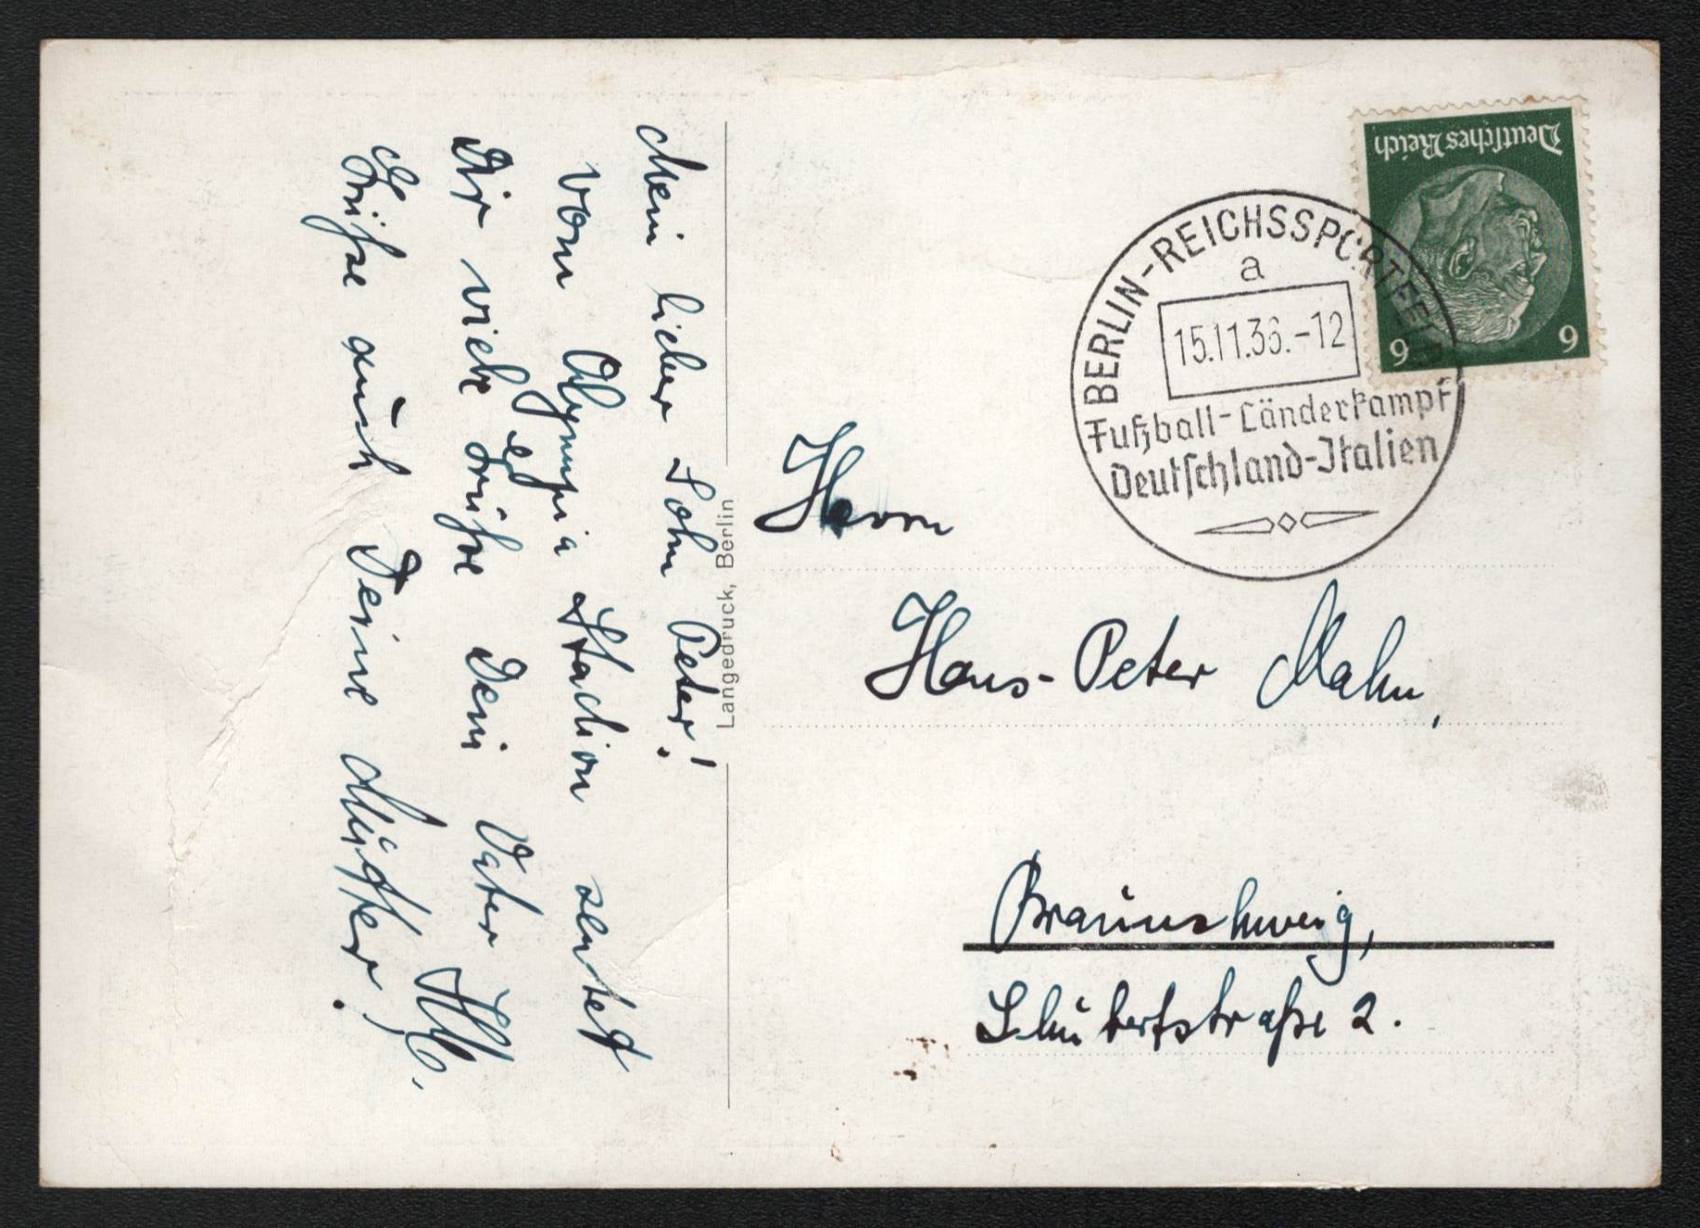 Mein lieber Sohn Peter!
Vom Olympia Stadion sendet
Dir viele Grüße Dein Vater
Grüße auch Deine Mutter!
Langedruck, Berlin
Deutsches Reich
6 6
BERLIN-REICHSSPORTFELD
a
15.11.36.-12
Fußball-Länderkampf
Deutschland-Italien
Herrn
Hans-Peter Mahn,
Braunschweig,
Schubertstraße 2.